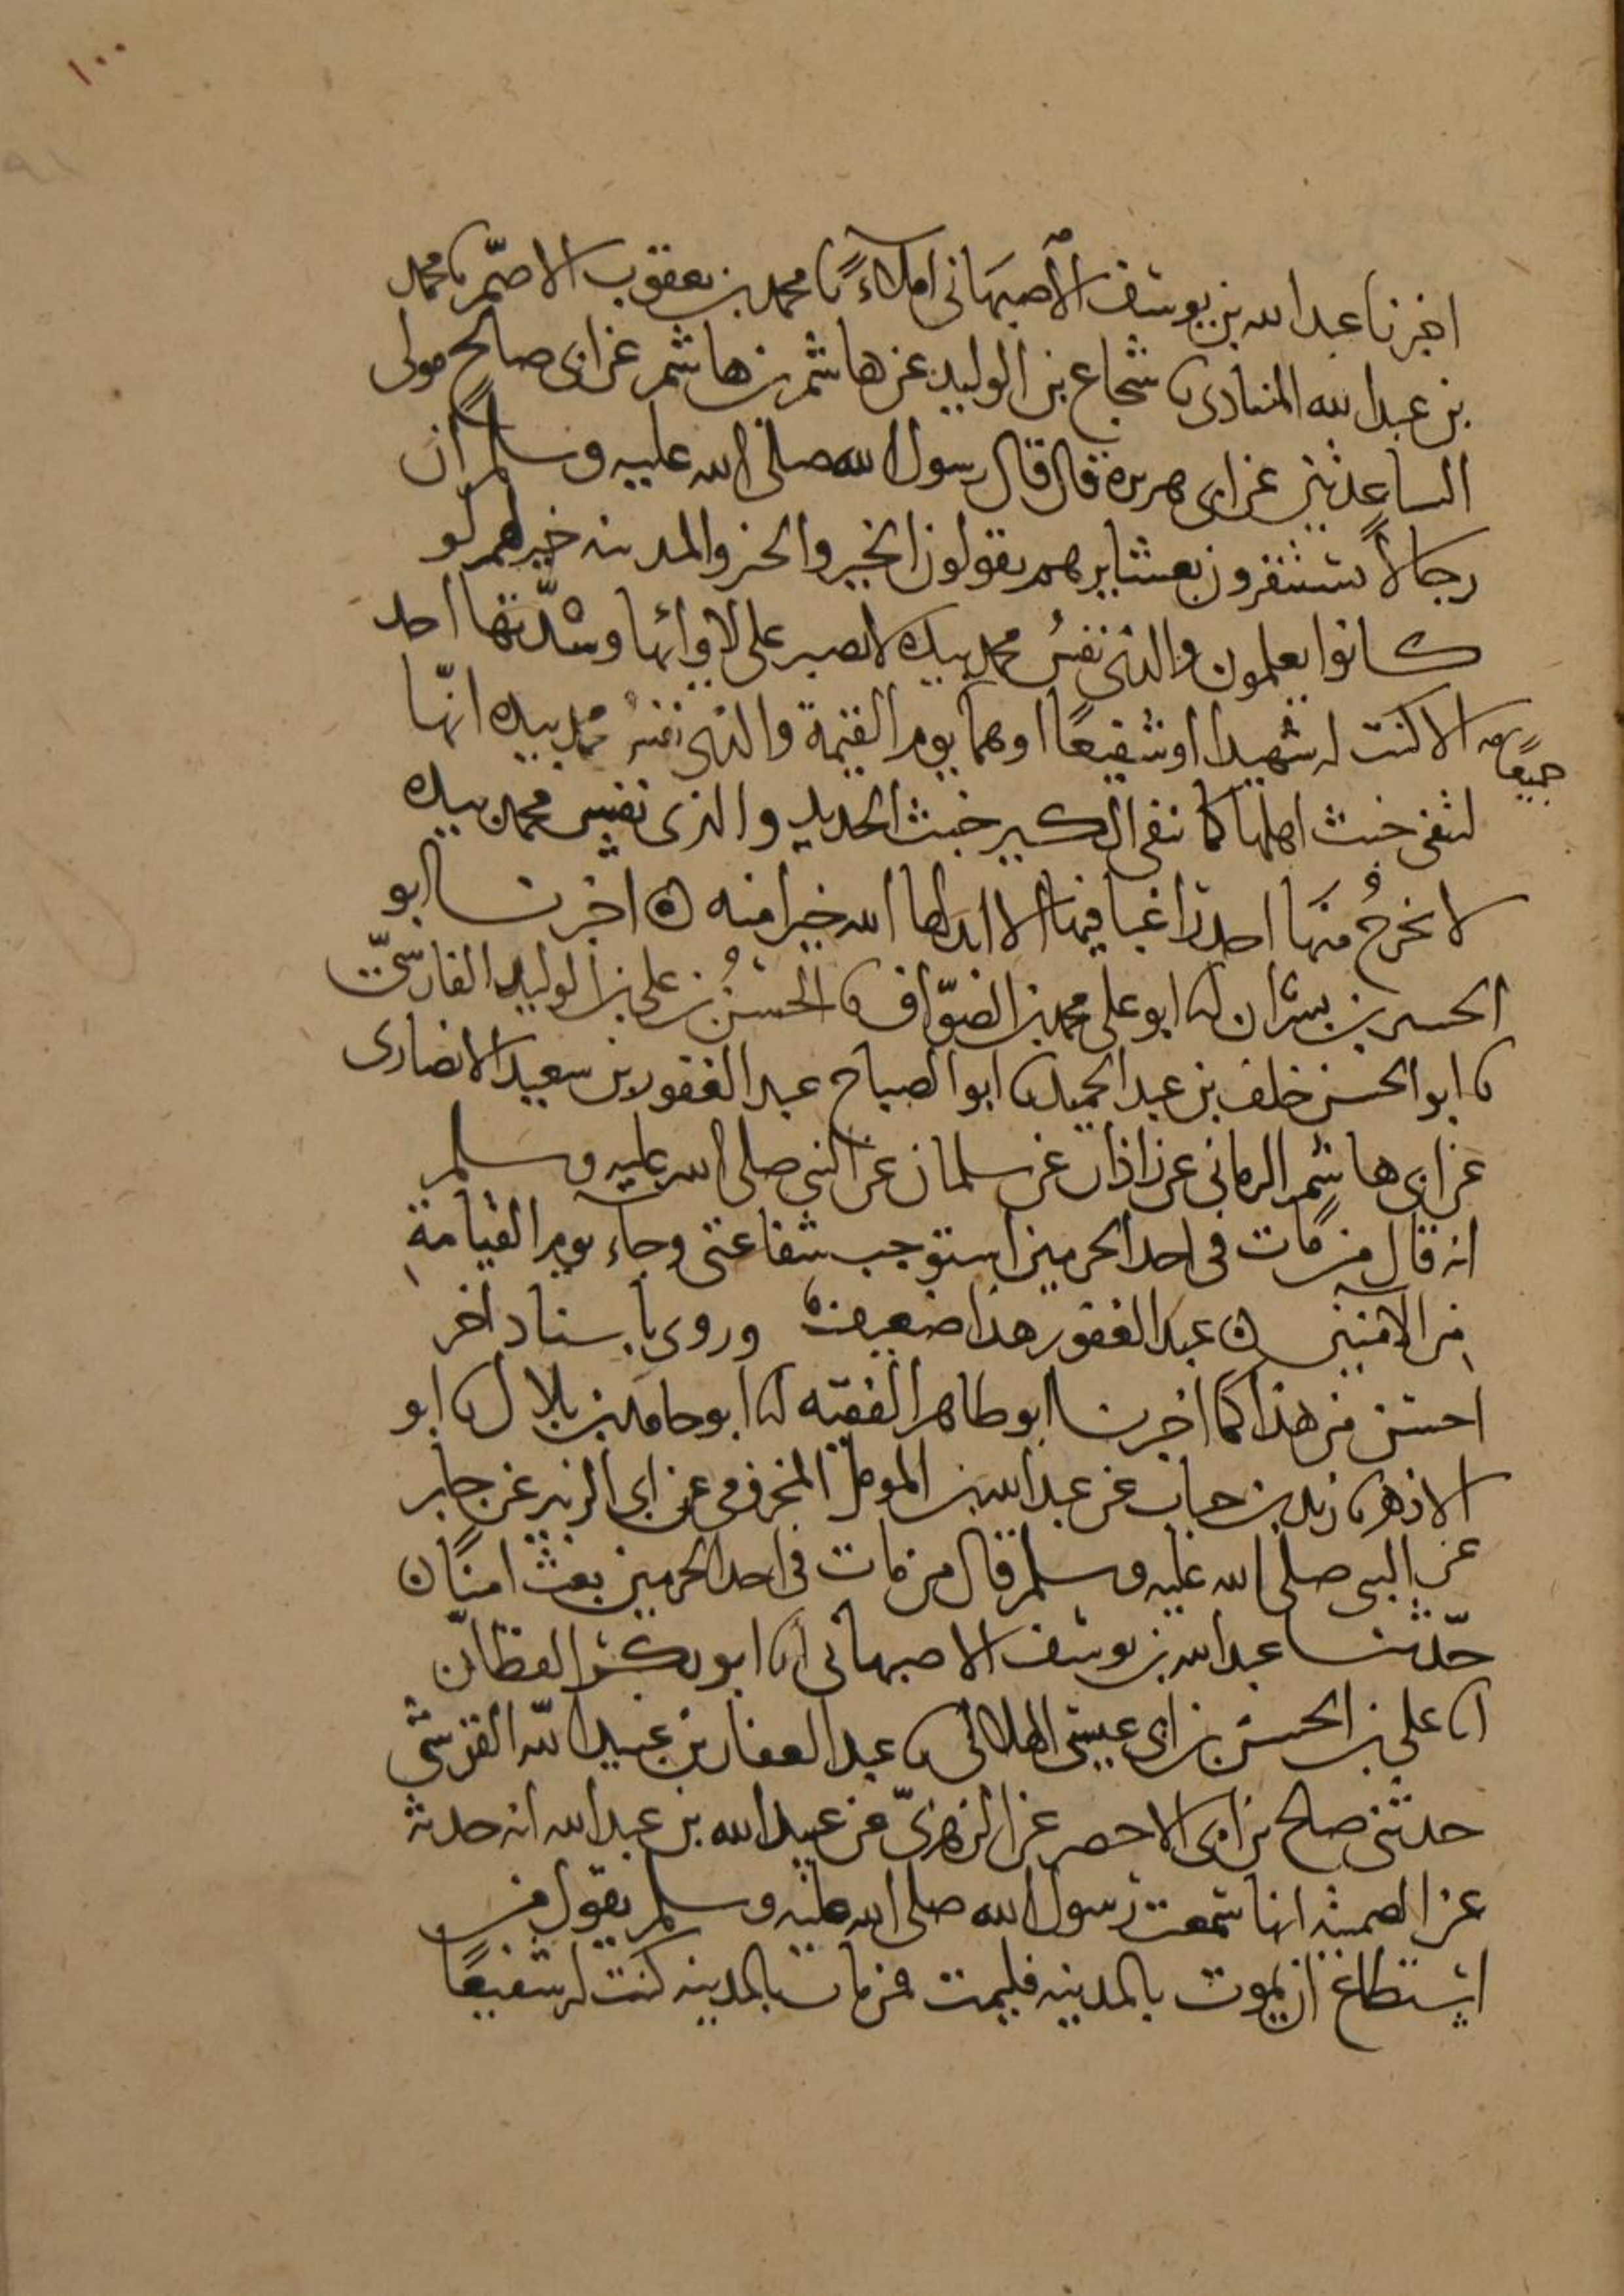 ١٠٠
اخبرنا عبد الله بن يوسف الاصبهانى املاءً نا محمد بن يعقوب الاصمّ نا محمد
بن عبد الله المنادى نا شجاع بن الوليد عن هاشم بن هاشم عن ابى صالح مولى
الساعديين عن ابى هريرة قال قال رسول الله صلى الله عليه وسلم ان
رجالاً يستنفرون بعشايرهم يقولون الخير والخير والمدينه خير لهم لو
كانوا يعلمون والذى نفسُ محمد بيده لا يصبر على لاوائها وشدّتها احد
الا كنت له شهيدا او شفيعًا او هما يوم القيمة والذى نفس محمد بيده انّها
جميعًا
لتنفى خبث اهلها كما ينفى الكير خبث الحديد والذى نفس محمد بيده
لا يخرجُ منها احد راغبا فيها الا ابدلها الله خيرا منه ه اخبرنا ابو
الحسين بن بشران انا ابو على محمد بن الصوّاف نا الحسنُ بن على بن الوليد الفارسىّ
نا ابو الحسن خلف بن عبد الحميد نا ابو الصباح عبد الغفور بن سعيد الانصارى
عن ابى هاشم الرمانى عن زاذان عن سلمان عن النبى صلى الله عليه وسلم
انه قال من مات فى احد الحرمين استوجب شفاعتى وجاء يوم القيامةِ
مِن الامنين ه عبد الغفور هذا ضعيف وروى باسناد اخر
احسن من هذا كما اخبرنا ابو طاهر الفقيه انا ابو حامد بن بلال نا ابو
الازهر نا زيد بن حباب عن عبد الله بن المومل المخزومى عن ابى الزبير عن جابر
عن النبى صلى الله عليه وسلم قال من مات فى احد الحرمين بعث امنًا ه
حدّثنا عبد الله بن يوسف الاصبهانى انا ابو بكر القطان
انا على بن الحسن بن ابى عيسى الهلالى نا عبد الغفار بن عبيد الله القرشى
حدثنى صلح بن ابى الاخضر عن الزهرىّ عن عبيد الله بن عبد الله انه حدثه
عن الصميته انها سمعت رسول الله صلى الله عليه وسلم يقول من
استطاع ان يموت بالمدينه فليمت فمن مات بالمدينه كنت له شفيعًا